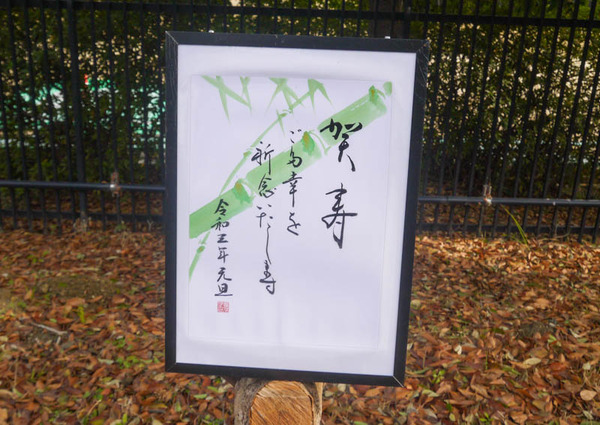 賀寿
ご多幸を
祈念いたします
令和五年元旦